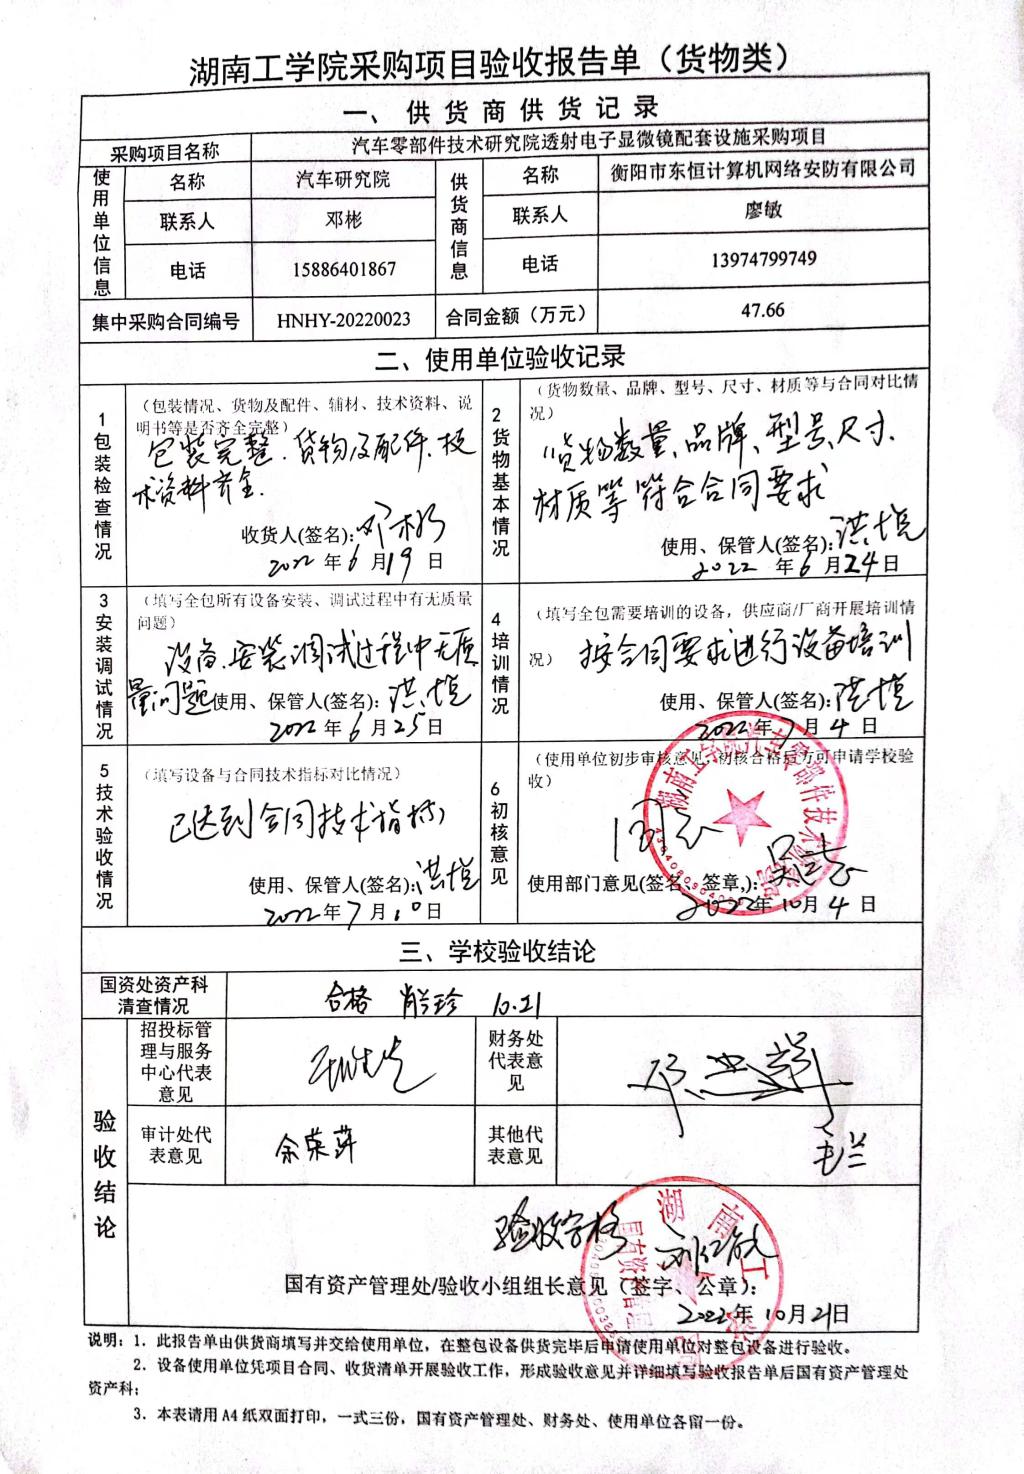 湖南工学院采购项目验收报告单（货物类）
一、供货商供货记录
采购项目名称 汽车零部件技术研究院透射电子显微镜配套设施采购项目
使用单位信息 名称 汽车研究院 供货商信息 名称 衡阳市东恒计算机网络安防有限公司
联系人 邓彬 联系人 廖敏
电话 15886401867 电话 13974799749
集中采购合同编号 HNHY-20220023 合同金额（万元） 47.66
二、使用单位验收记录
1包装检查情况
（包装情况、货物及配件、辅材、技术资料、说
明书等是否齐全完整）
包装完整、货物及配件、技
术资料齐全.
收货人(签名): 邓彬
2022年6月19日
2货物基本情况
（货物数量、品牌、型号、尺寸、材质等与合同对比情
况）
货物数量、品牌、型号、尺寸、
材质等符合合同要求
使用、保管人(签名): 洪恺
2022年6月24日
3安装调试情况
（填写全包所有设备安装、调试过程中有无质量
问题）
设备、安装调试过程中无质
量问题 使用、保管人(签名): 洪恺
2022年6月25日
4培训情况
（填写全包需要培训的设备，供应商/厂商开展培训情
况） 按合同要求进行设备培训
使用、保管人(签名): 洪恺
2022年7月4日
5技术验收情况
（填写设备与合同技术指标对比情况）
已达到合同技术指标
使用、保管人(签名): 洪恺
2022年7月10日
6初核意见
（使用单位初步审核意见，初核合格后方可申请学校验
收）
同意
使用部门意见(签名、签章,):
2022年10月4日
湖南工学院汽车零部件技术研究院
三、学校验收结论
国资处资产科
清查情况
合格 肖兰珍 10.21
验收结论
招投标管
理与服务
中心代表
意见
财务处
代表意
见
审计处代
表意见
余荣萍
其他代
表意见
毛兰
验收合格
国有资产管理处/验收小组组长意见（签字、公章）:
2022年10月21日
说明：1．此报告单由供货商填写并交给使用单位，在整包设备供货完毕后申请使用单位对整包设备进行验收。
2．设备使用单位凭项目合同、收货清单开展验收工作，形成验收意见并详细填写验收报告单后国有资产管理处
资产科；
3．本表请用A4纸双面打印，一式三份，国有资产管理处、财务处、使用单位各留一份。